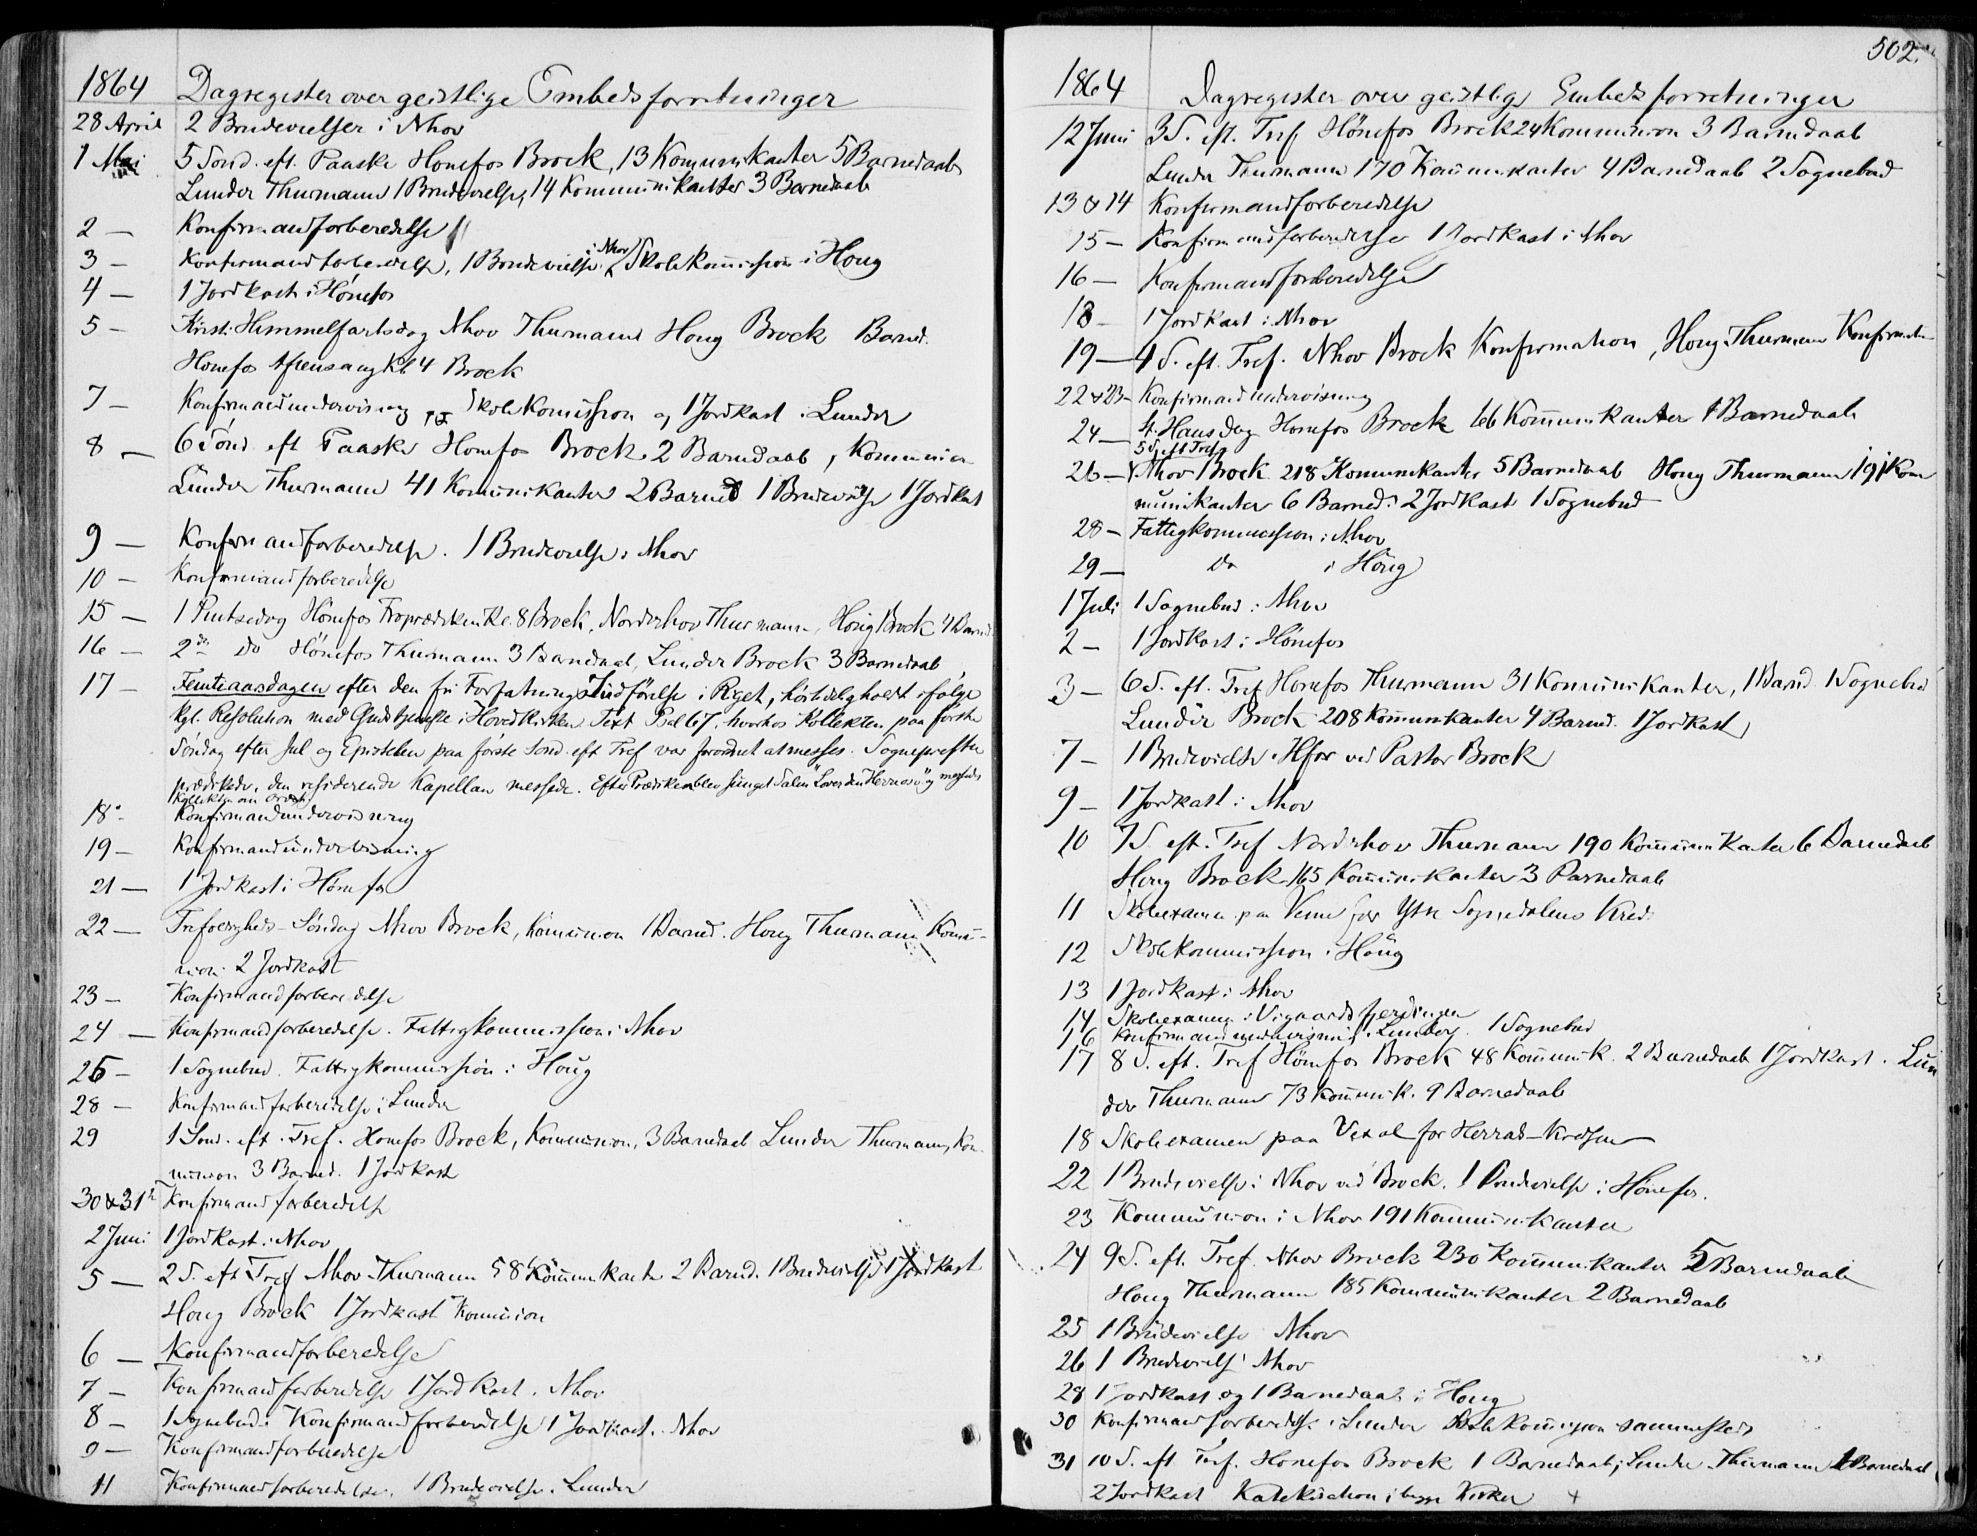 1864 Dagregister over geistlige Embedsforretninger
28 April 2 Brudevielser i Nhov
1 Mai 5 Sønd. eft. Paaske Hønefos Brock, 13 Kommunikanter 5 Barnedaab
Lunder Thurmann 1 Brudevielse, 14 Kommunikanter 3 Barnedaab
2 — Konfirmandforberedelse
3 — Konfirmandforberedelse, 1 Brudevielse i Nhov Skolekommission i Houg
4 — 1 Jordkast i Hønefos
5 — Kristi Himmelfartsdag Nhov Thurmann Houg Brock Barned.
Hønefos Aftensang Kl 4 Brock
7 — Konfirmandundervisning Skolekomission og 1 Jordkast i Lunder
8 — 6 Sønd. eft Paaske Hønefos Brock 2 Barnedaab, Kommunion
Lunder Thurmann 41 Komunikanter 2 Barned 1 Brudevielse 1 Jordkast
9 — Konfirmandforberedelse. 1 Brudevielse i Nhov
10 — Konfirmandforberedelse
15 — 1 Pintsedag Hønefos Froprædiken Kl. 8 Brock, Norderhov Thurmann, Houg Brock 4 Barned
16 — 2den Do Hønefos Thurmann 3 Barnedaab, Lunder Brock 3 Barnedaab
17 — Femtiaarsdagen efter den fri Forfatnings Indførelse i Riget, høitideligholdt ifølge
kgl. Resolution med Gudstjeneste i Hovedkirken Text Psal 67, hvorhos Kollekten paa første
Søndag efter Jul og Epistelen paa første Sønd. eft Tref var forordnet at messes. Sognepresten
prædikede, den residerende Kapellan messede. Efter Prædiken blev sunget Salm "Lover den Herre" og messedes
Kollekten om Ordet
18 — Konfirmandundervisning
19 — Konfirmandundervisning
21 — 1 Jordkast i Hønefos
22 — Trefoldigheds-Søndag Nhov Brock, Kommunion 1 Barned. Houg Thurmann Kommu-
nion. 2 Jordkast
23 — Konfirmandforberedelse
24 — Konfirmandforberedelse. Fattigkommission i Nhov
25 — 1 Sognebud. Fattigkommission i Houg
28 — Konfirmandforberedelse i Lunder
29 1 Sønd. eft. Tref. Hønefos Brock, Kommunion, 3 Barnedaab Lunder Thurmann, Kom-
munion 3 Barned. 1 Jordkast
30 & 31te Konfirmandforberedelse
2 Juni 1 Jordkast i Nhov
5 — 2 S. eft Tref Nhov Thurmann 58 Kommunkanter 2 Barned. 1 Brudevielse 1 Jordkast
Houg Brock 1 Jordkast Komunion
6 — Konfirmandforberedelse
7 — Konfirmandforberedelse 1 Jordkast i Nhov
8 — 1 Sognebud. Konfirmandforberedelse 1 Jordkast i Nhov
9 — Konfirmandforberedelse
11 Konfirmandforberedelse. 1 Brudevielse i Lunder
502
1864 Dagregister over geistlige Embedsforretninger
12 Juni 3 S. eft. Tref Hønefos Brock 24 Kommunion 3 Barnedaab
Lunder Thurmann 170 Kommunikanter 4 Barnedaab 2 Sognebud
13 & 14 Konfirmandforberedelse
15 — Konfirmandforberedelse 1 Jordkast i Nhov
16 — Konfirmandforberedelse
18 — 1 Jordkast i Nhov
19 — 4 S. eft. Tref. Nhov Brock Konfirmation, Houg Thurmann Konfirmation
22 & 23 — Konfirmandundervisning
24 — St. Hansdag Hønefos Brock 66 Kommunikanter 1 Barnedaab
5 S. eft Tref
26 — Nhov Brock 218 Komunikanter 5 Barnedaab Houg Thurmann 191 Kom
munikanter 6 Barned. 2 Jordkast 1 Sognebud
28 — Fattigkommission i Nhov
29 — Do i Houg
1 Juli 1 Sognebud i Nhov
2 — 1 Jordkast i Hønefos
3 — 6 S. eft. Tref Hønefos Thurmann 31 Komunikanter, 1 Barned. 1 Sognebud
Lunder Brock 208 Kommunikanter 4 Barned. 1 Jordkast
7 — 1 Brudevielse i Hfos ved Pastor Brock
9 — 1 Jordkast i Nhov
10 7 S. eft. Tref Norderhov Thurmann 190 Kommunikanter 6 Barnedaab
Houg Brock 165 Kommunikanter 3 Barnedaab
11 Skoleexamen paa Veme for Ytre Sognedalens Kreds
12 Skolekommission i Houg
13 1 Jordkast i Nhov
14 Skoleexamen i Vegaardsfjerdingen
16 Konfirmandundervisning i Lunder. 1 Sognebud
17 8 S. eft. Tref Hønefos Brock 48 Kommunik. 2 Barnedaab 1 Jordkast. Lun
der Thurmann 73 Kommunik. 9 Barnedaab
18 Skoleexamen paa Vexal for Herrads-Kredsen
22 1 Brudevielse i Nhov ved Brock. 1 Brudevielse i Hønefos.
23 Kommunion i Nhov 191 Kommunikanter
24 9 S. eft. Tref. Nhov Brock 230 Kommunikanter 5 Barnedaab
Houg Thurmann 185 Kommunikanter 2 Barnedaab
25 1 Brudevielse Nhov
26 1 Brudevielse Nhov
28 1 Jordkast og 1 Barnedaab i Houg
30 Konfirmandforberedelse i Lunder Skolekomission sammesteds
31 10 S. eft Tref. Hønefos Brock 1 Barnedaab, Lunder Thurmann 1 Barnedaab
2 Jordkast Katekisation i begge Kirker